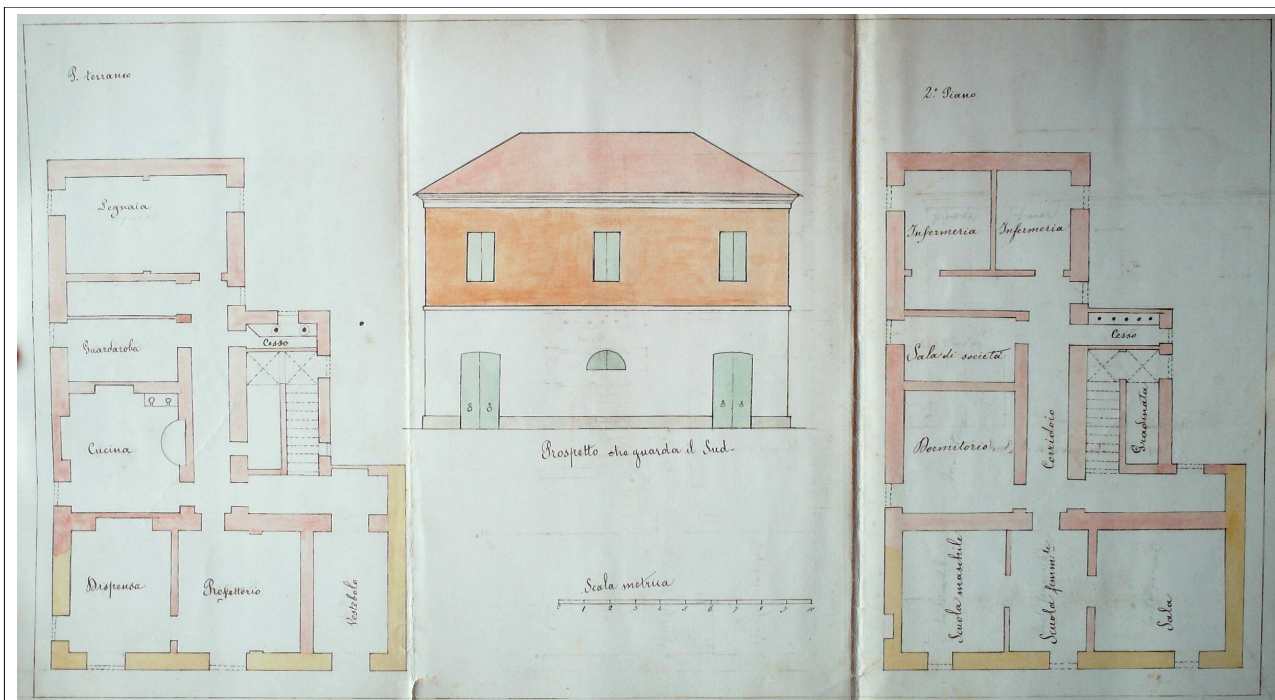 P. terraneo
Legnaia
Guardaroba
Cesso
Cucina
Dispensa
Refettorio
Vestibolo
Prospetto che guarda il Sud.
Scala metrica
0 1 2 3 4 5 6 7 8 9 10
2.° Piano
Infermeria
Infermeria
Cesso
Sala di società
Dormitorio
Corridoio
Gradinata
Scuola maschile
Scuola femm.le
Sala